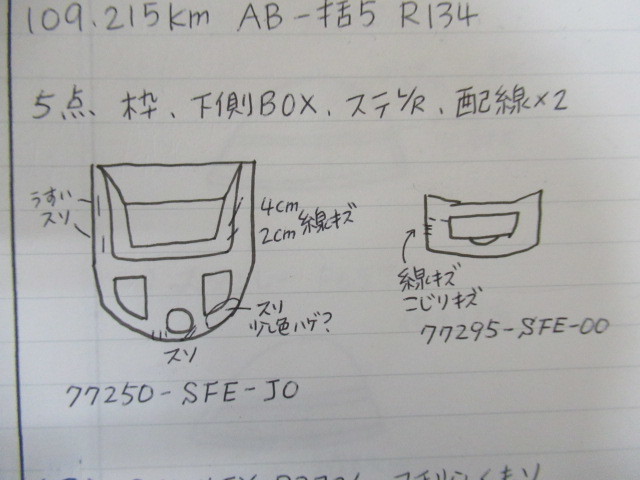 109.215km AB-括5 R134
5点、枠、下側BOX、ステL/R、配線×2
うすい
スソ
4cm
2cm 線キズ
スリ
少し色ハゲ?
スソ
77250-SFE-J0
線キズ
こじりキズ
77295-SFE-00